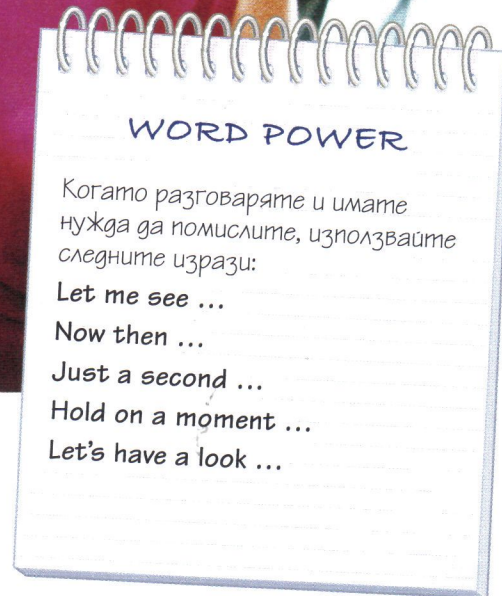 WORD POWER
Когато разговаряте и имате
нужда да помислите, използвайте
следните изрази:
Let me see ...
Now then ...
Just a second ...
Hold on a moment ...
Let's have a look ...